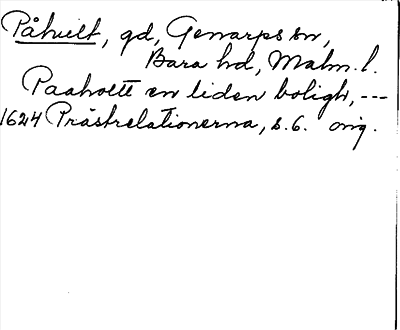 Påhvilt, gd, Genarps sn,
Bara hd, Malm. l.
Paahvett en liden boligh, ---
1624 Prästrelationerna, s. 6. orig.